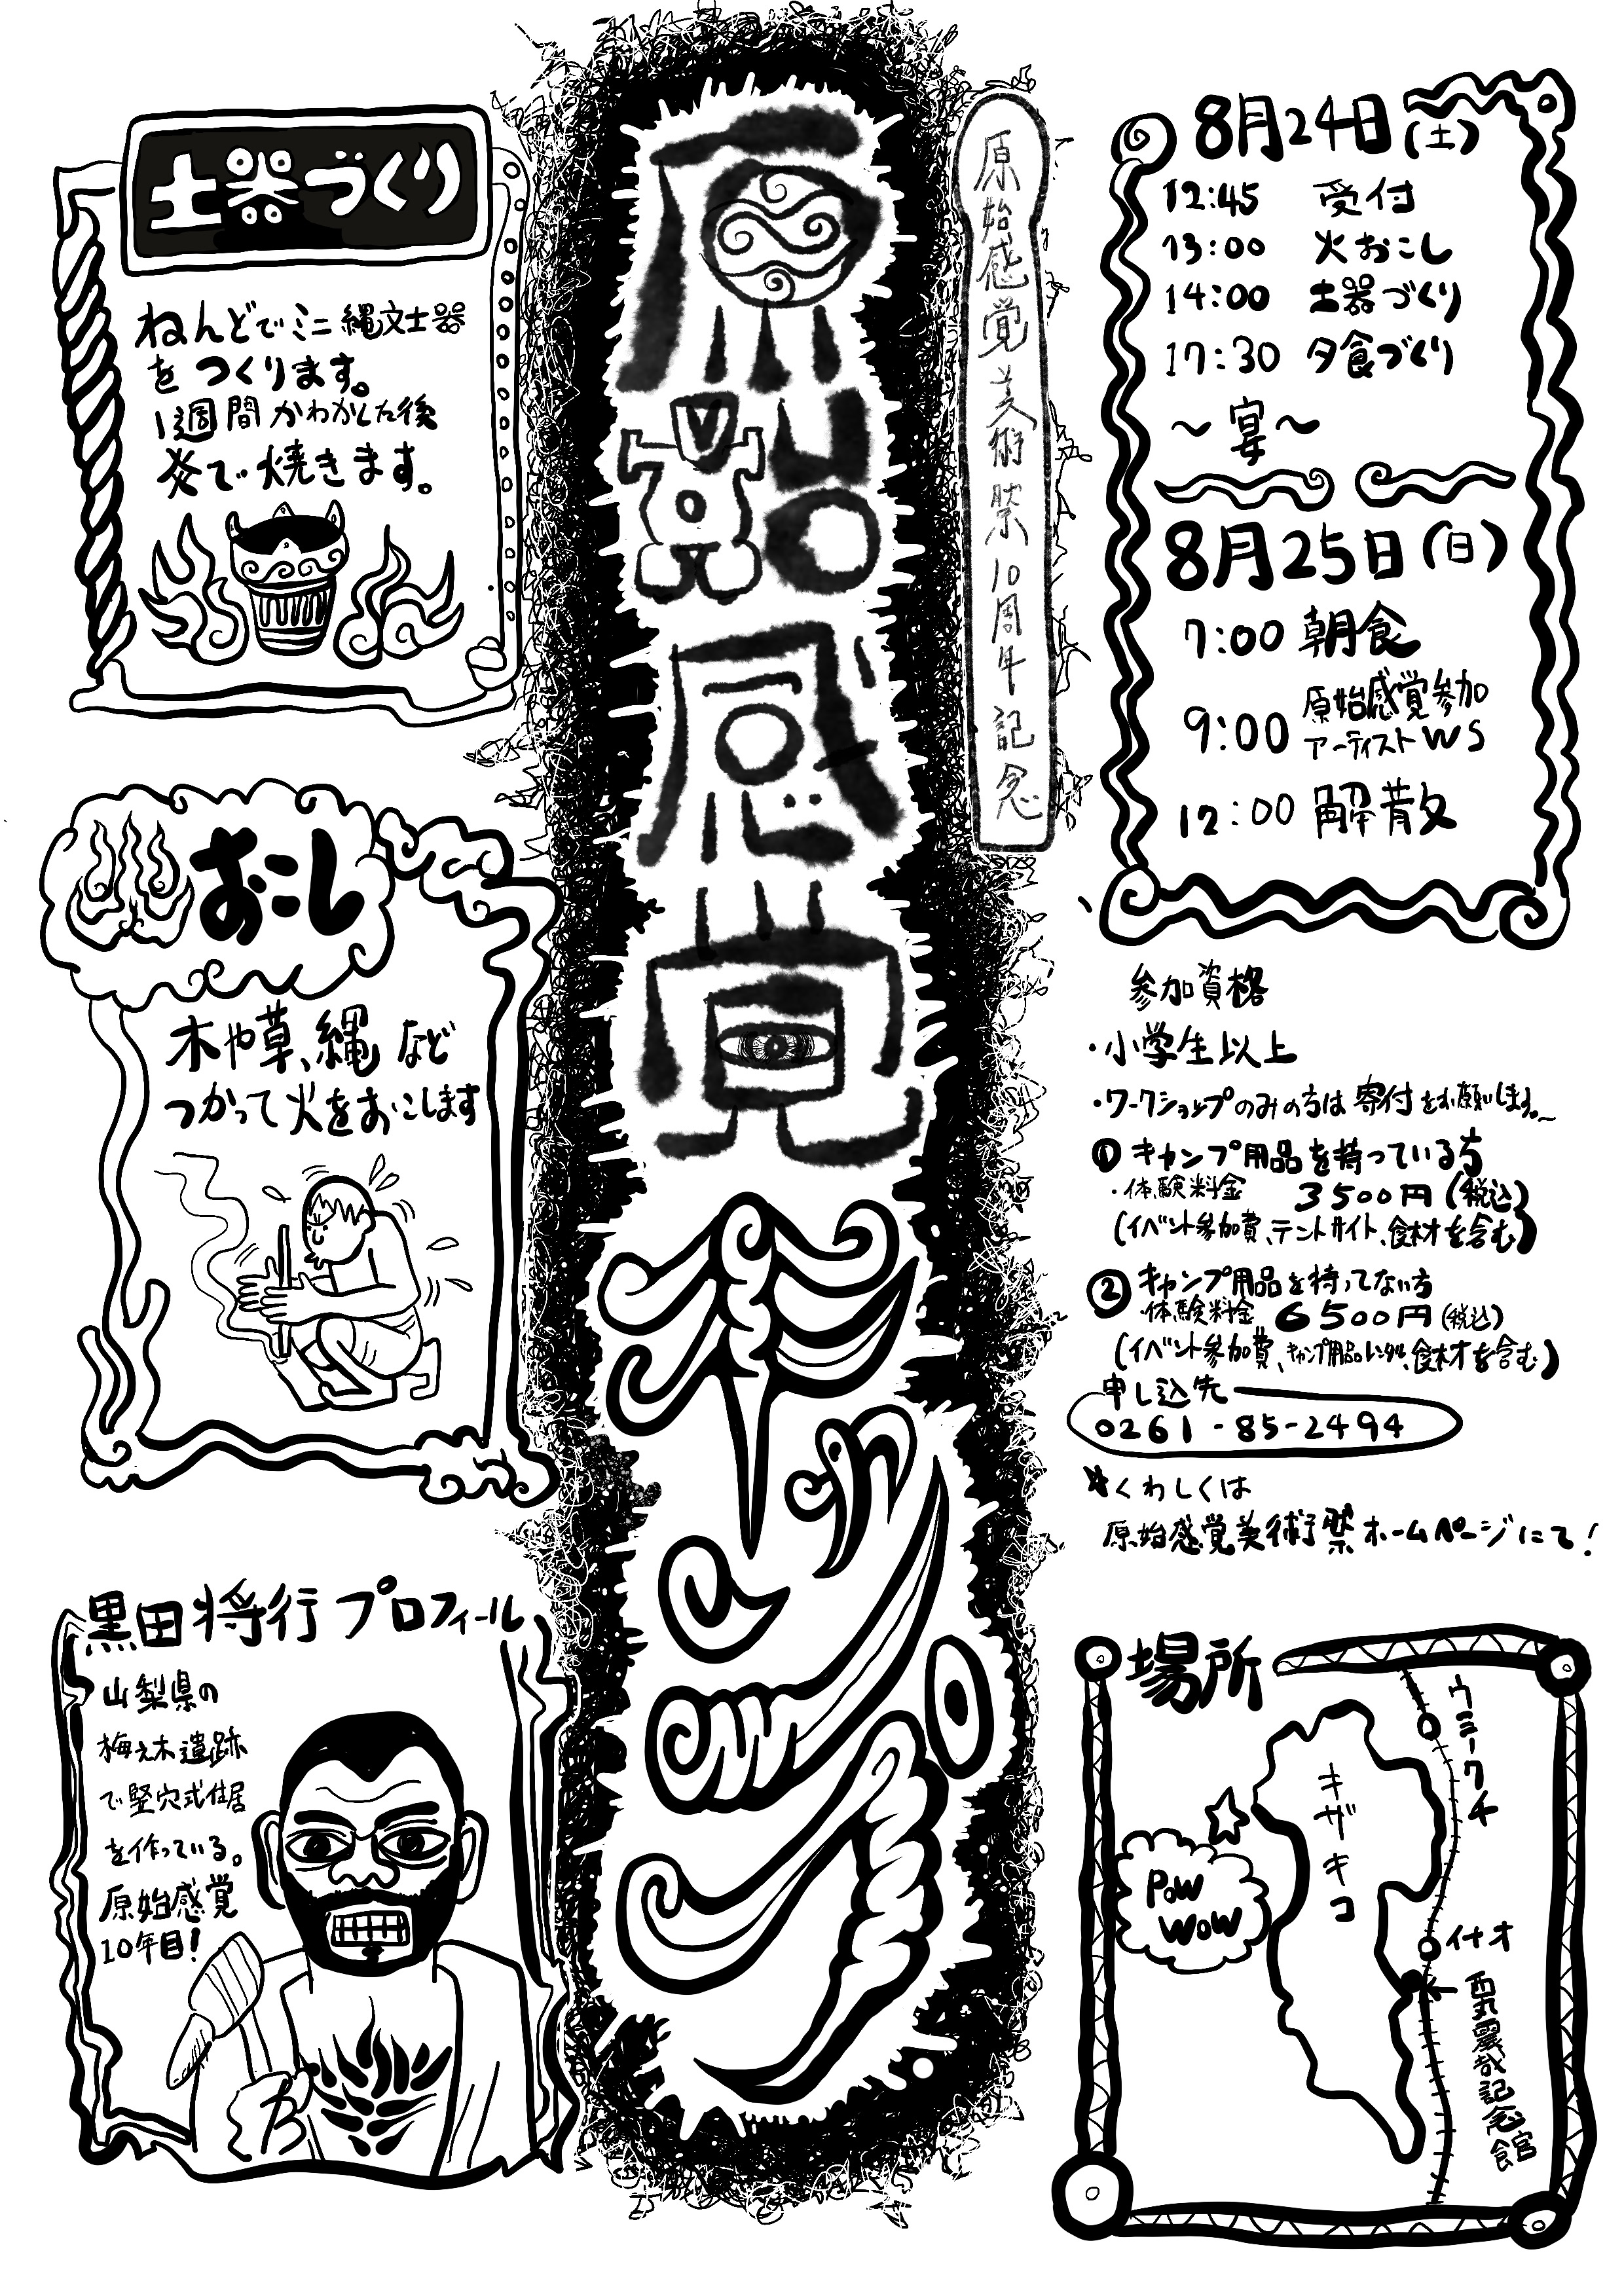 土器づくり
ねんどでミニ縄文土器
をつくります。
1週間かわかした後
火で焼きます。
火おこし
木や草、縄など
つかって火をおこします
黒田将行プロフィール
山梨県の
梅之木遺跡
で竪穴式住居
を作っている。
原始感覚
10年目!
原始感覚キャンプ
原始感覚美術祭10周年記念
8月24日(土)
12:45 受付
13:00 火おこし
14:00 土器づくり
17:30 夕食づくり
～宴～
8月25日(日)
7:00 朝食
9:00 原始感覚参加
アーティストWS
12:00 解散
参加資格
・小学生以上
・ワークショップのみの方は寄付をお願いします。～
① キャンプ用品を持っている方
・体験料金 3500円(税込)
(イベント参加費、テントサイト、食材を含む)
② キャンプ用品を持ってない方
・体験料金 6500円(税込)
(イベント参加費、キャンプ用品レンタル、食材を含む)
申し込先
0261-85-2494
*くわしくは
原始感覚美術祭ホームページにて!
場所
ウミノクチ
キザキコ
POW
WOW
イナオ
西丸震哉記念館